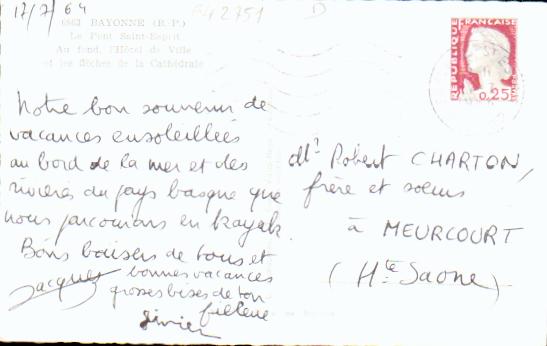 17/7/64
B42751
D
6863 BAYONNE (B.-P.)
Le Pont Saint-Esprit
Au fond, l'Hôtel de Ville
et les flèches de la Cathédrale
REPUBLIQUE FRANÇAISE
0,25
POSTES
Notre bon souvenir de
vacances ensoleillées
au bord de la mer et des
rivières du pays basque que
nous parcourons en kayak.
Bons baisers de tous et
bonnes vacances
Jacques
grosses bises de ton
filleul
Olivier
Robert CHARTON,
frère et soeurs
à MEURCOURT
(Hte Saone)